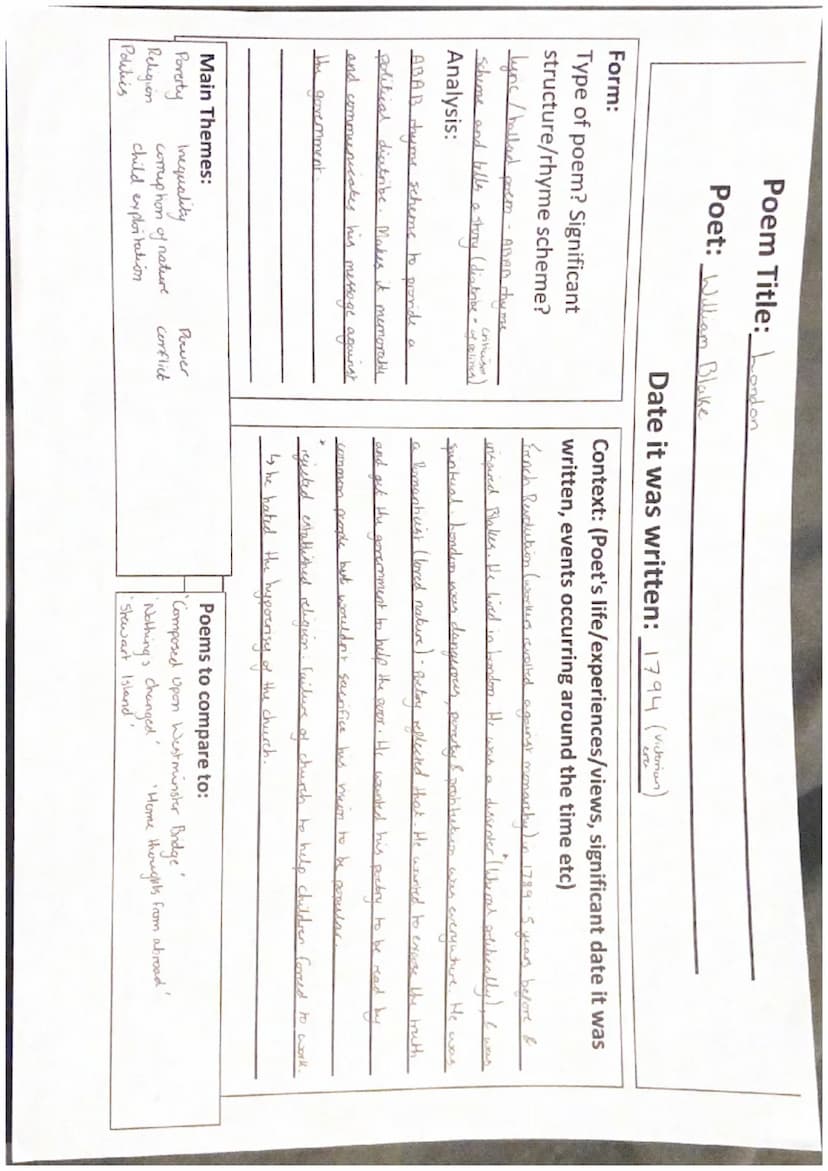 Poem Title: London
Poet: William Blake
Date it was written: 1794 (Victorian era)
Form:
Type of poem? Significant
structure/rhyme scheme?
Lyric / ballad poem - ABAB rhyme
scheme and tells a story (diatribe = criticism of politics)
Analysis:
ABAB rhyme scheme to provide a
political diatribe. Makes it memorable
and communicates his message against
the government.
Context: (Poet's life/experiences/views, significant date it was
written, events occurring around the time etc)
French Revolution (workers revolted against monarchy) in 1789 - 5 years before &
inspired Blake. He lived in London. He was a dissenter* (liberal politically), & was
spiritual. London was dangerous, poverty & prostitution was everywhere. He was
a Romanticist (loved nature) - poetry reflected that. He wanted to expose the truth
and get the government to help the poor. He wanted his poetry to be read by
common people but wouldn't sacrifice his vision to be popular.
* rejected established religion. Failure of church to help children forced to work.
↳ he hated the hypocrisy of the church.
Main Themes:
Poverty Inequality Power
Religion corruption of nature conflict
Politics child exploitation
Poems to compare to:
'Composed Upon Westminster Bridge'
'Nothing's changed' 'Home thoughts from abroad'
'Stewart Island'